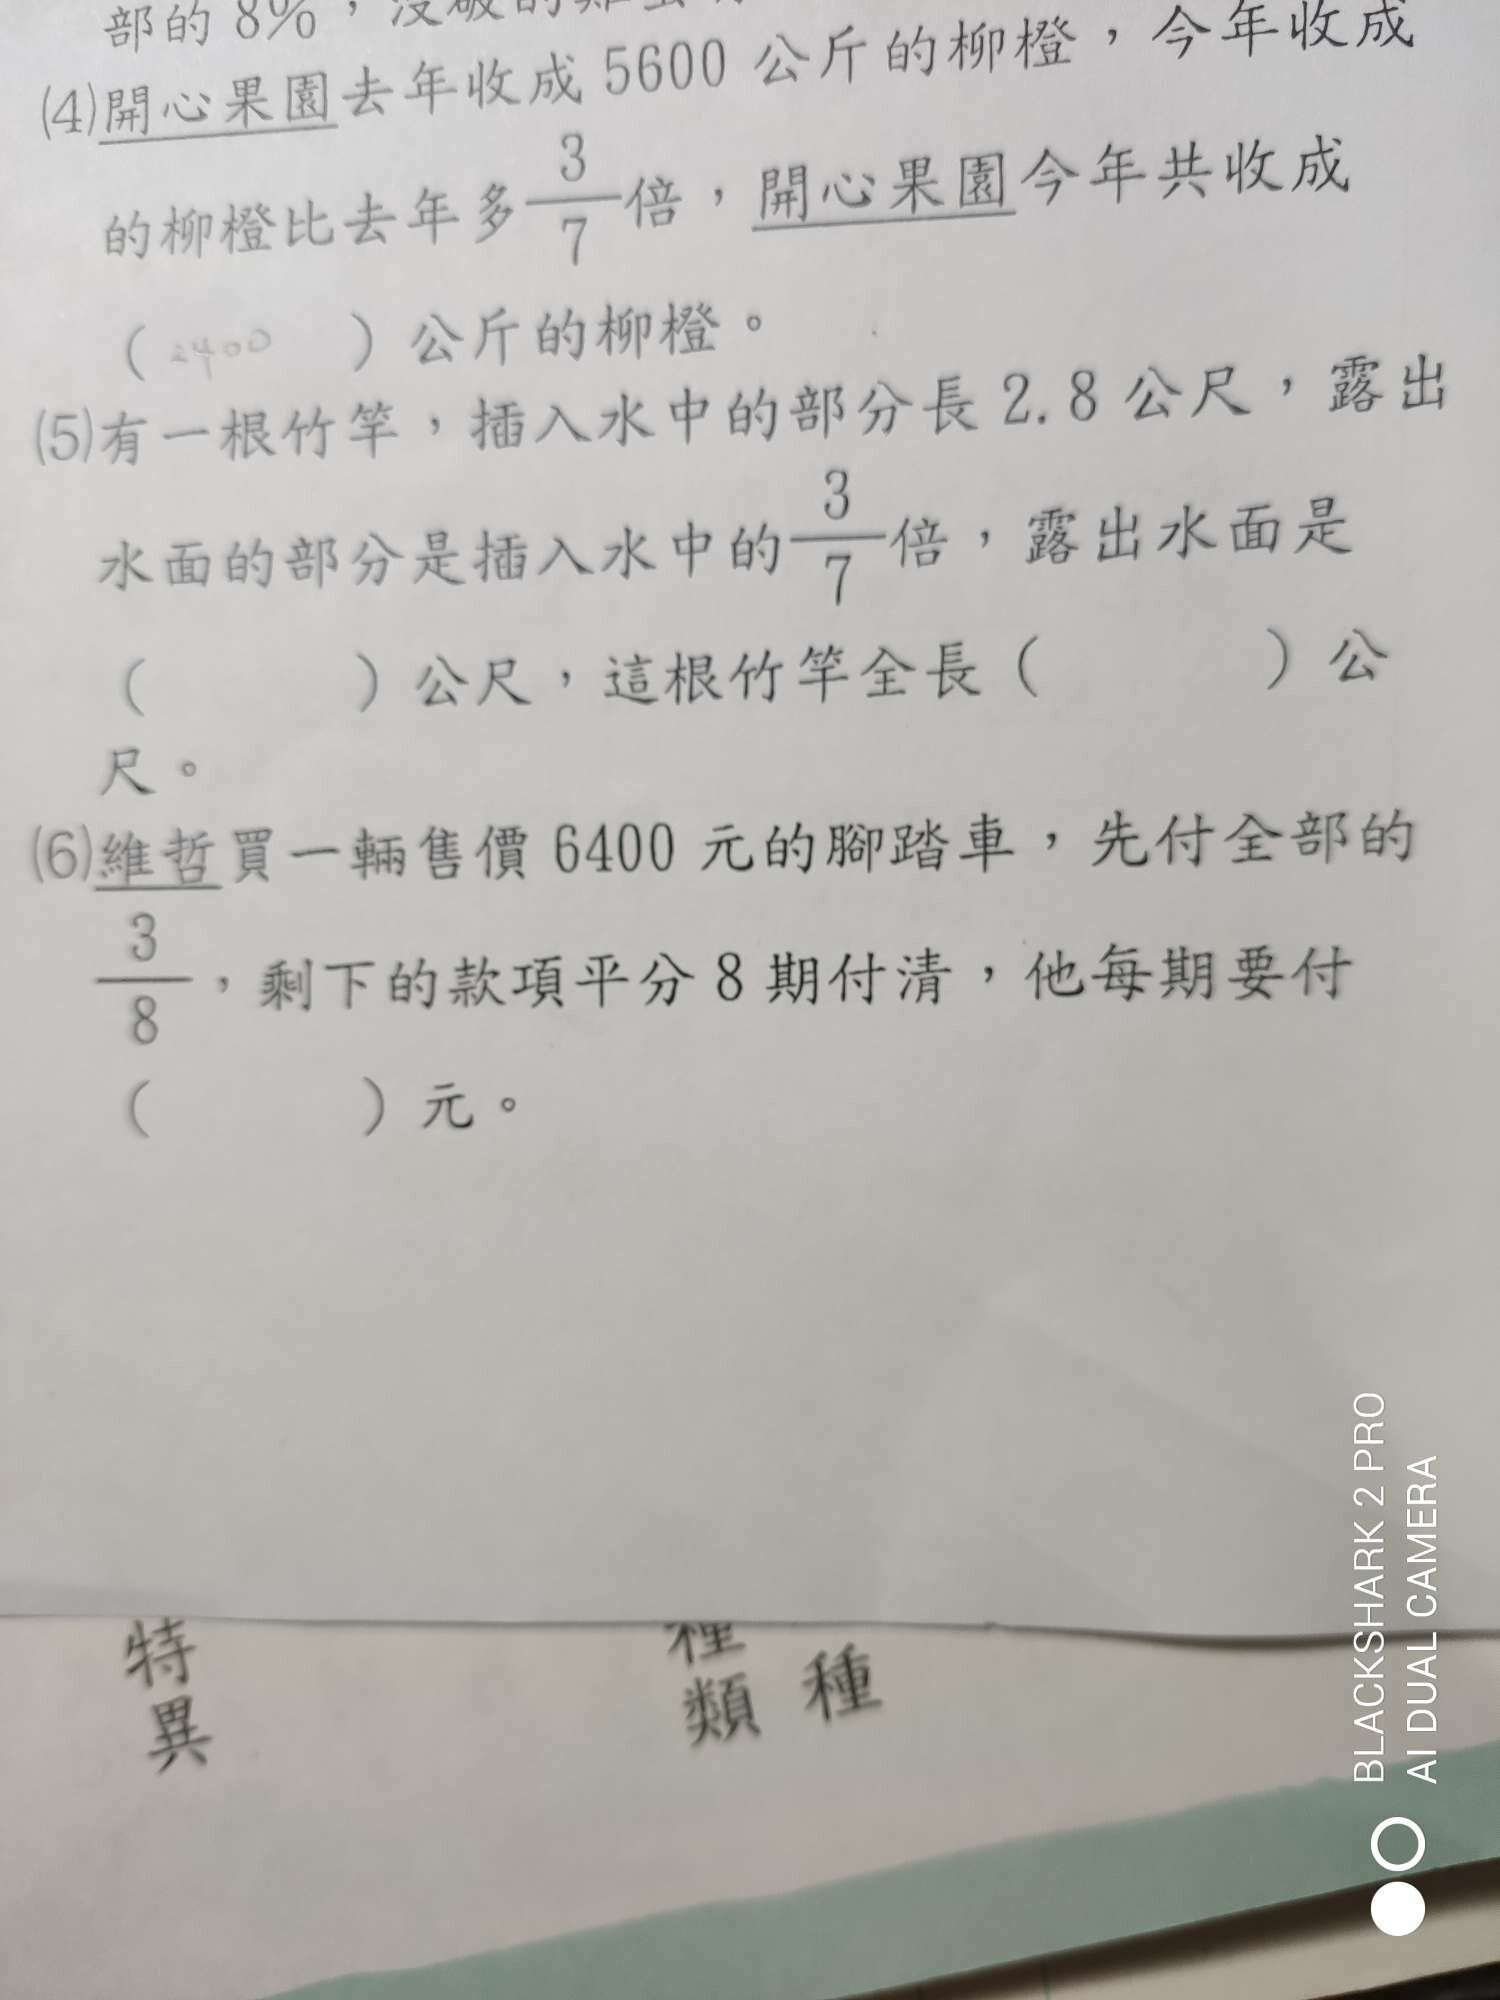 部的 8%，沒破的雞蛋
⑷開心果園去年收成 5600 公斤的柳橙，今年收成
的柳橙比去年多3/7倍，開心果園今年共收成
（ 2400 ）公斤的柳橙。
⑸有一根竹竿，插入水中的部分長 2.8 公尺，露出
水面的部分是插入水中的3/7倍，露出水面是
（ ）公尺，這根竹竿全長（ ）公
尺。
⑹維哲買一輛售價 6400 元的腳踏車，先付全部的
3/8，剩下的款項平分 8 期付清，他每期要付
（ ）元。
特異
種類
種
BLACKSHARK 2 PRO
AI DUAL CAMERA